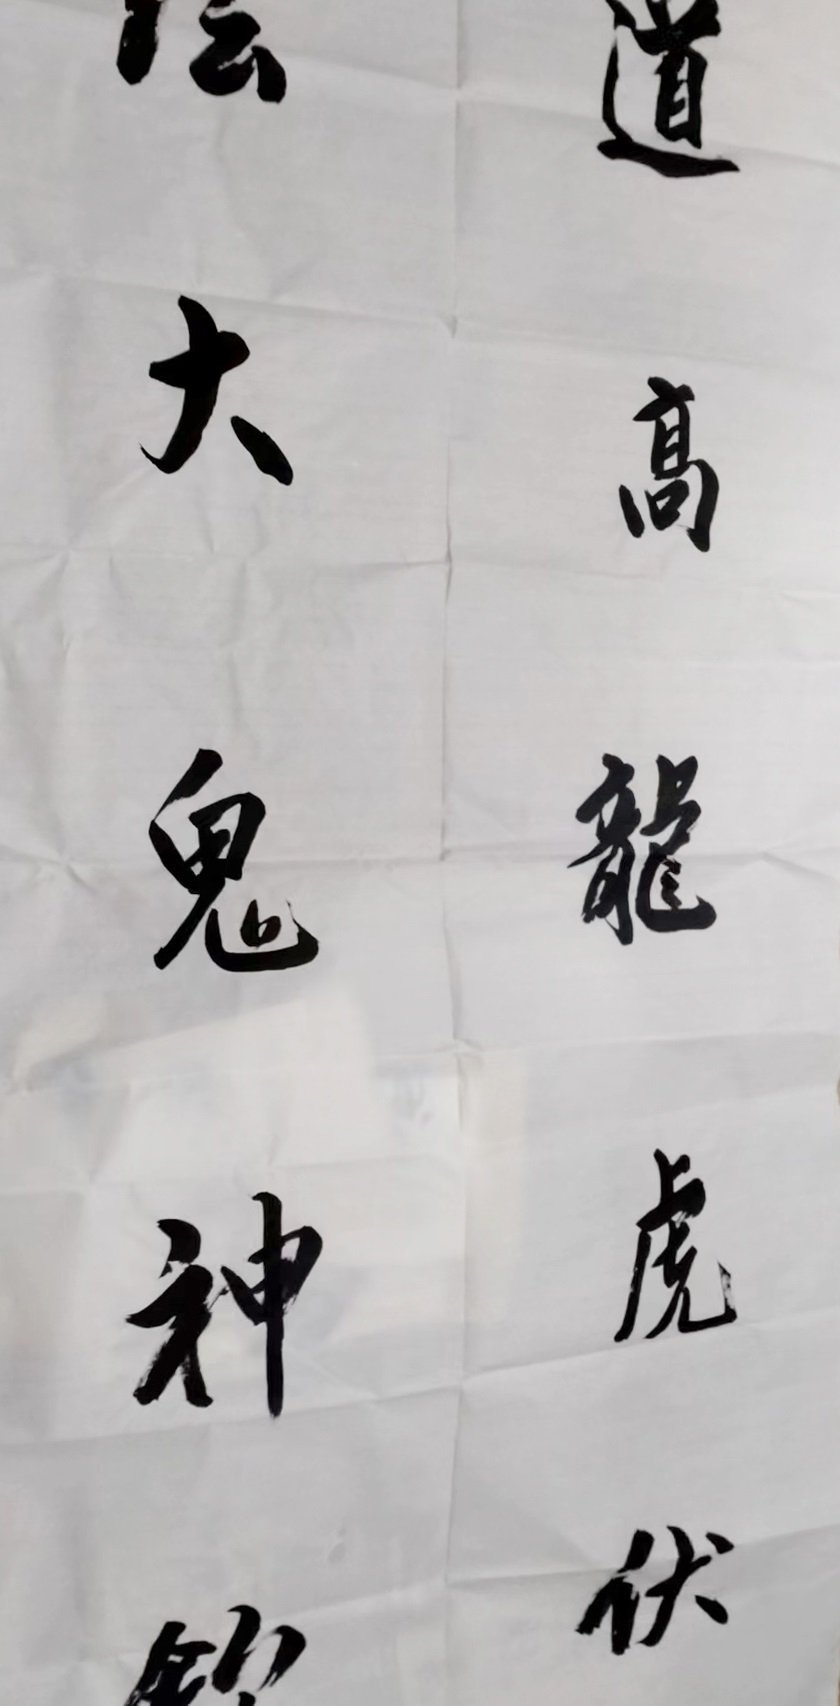 道高龍虎伏
法大鬼神欽